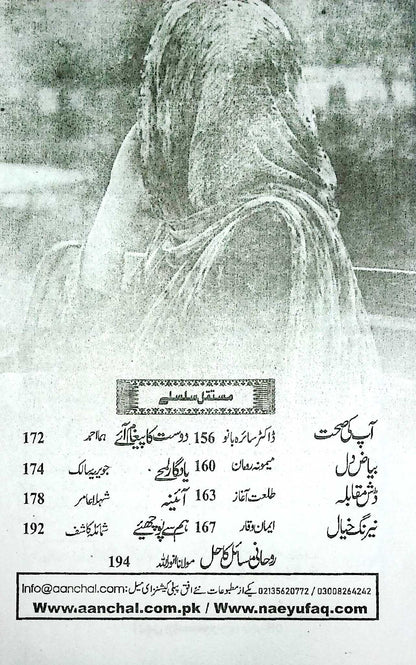 مستقل سلسلے
آپ کی صحت ڈاکٹر سائرہ بانو 156 دوست کا پیغام آئے ہما احمد 172
بیاض دل میمونہ رومان 160 یادگار لمحے جویریہ سالک 174
ڈش مقابلہ طلعت آغاز 163 آئینہ شہلا عامر 178
نیرنگ خیال ایمان وقار 167 ہم سے پوچھئے شمائلہ کاشف 192
روحانی مسائل کا حل مولانا انوار اللہ 194
02135620772 / 03008264242 کے از مطبوعات نئے افق پبلی کیشنز ای میل: Info@aanchal.com
Www.aanchal.com.pk / Www.naeyufaq.com